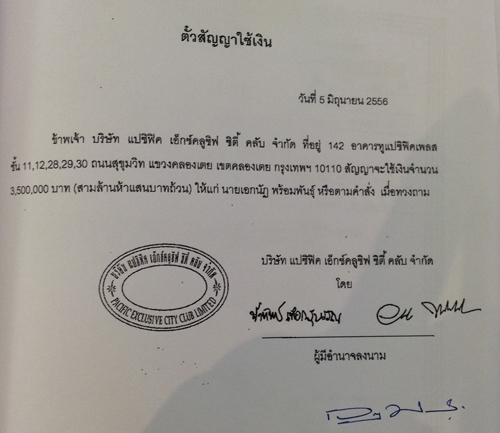 ตั๋วสัญญาใช้เงิน
วันที่ 5 มิถุนายน 2556
ข้าพเจ้า บริษัท แปซิฟิค เอ็กซ์คลูซิฟ ซิตี้ คลับ จำกัด ที่อยู่ 142 อาคารทูแปซิฟิคเพลส
ชั้น 11,12,28,29,30 ถนนสุขุมวิท แขวงคลองเตย เขตคลองเตย กรุงเทพฯ 10110 สัญญาจะใช้เงินจำนวน
3,500,000 บาท (สามล้านห้าแสนบาทถ้วน) ให้แก่ นายเอกนัฏ พร้อมพันธุ์ หรือตามคำสั่ง เมื่อทวงถาม
บริษัท แปซิฟิค เอ็กซ์คลูซิฟ ซิตี้ คลับ จำกัด
โดย
บริษัท แปซิฟิค เอ็กซ์คลูซิฟ ซิตี้ คลับ จำกัด
PACIFIC EXCLUSIVE CITY CLUB LIMITED
ผู้มีอำนาจลงนาม